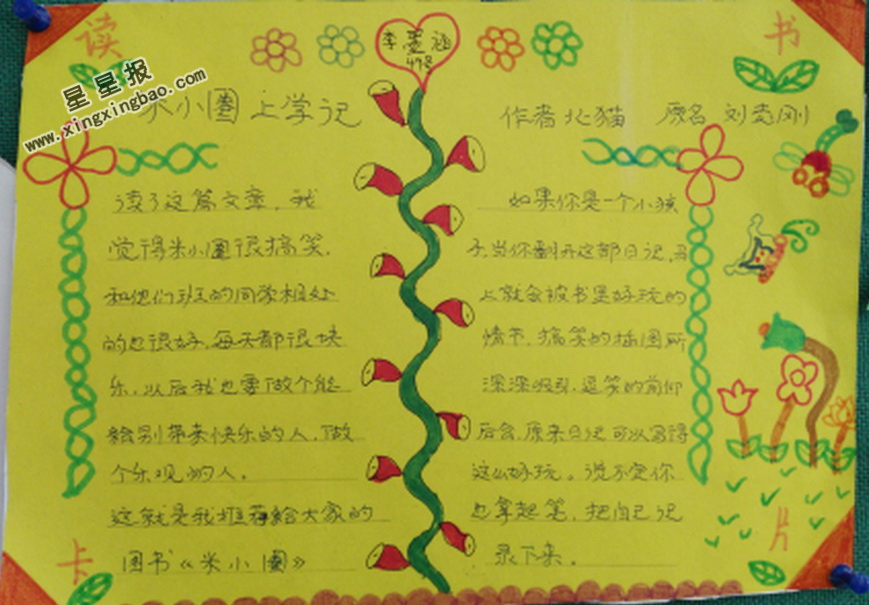 读
书
李墨涵
498
星星报
www.xingxingbao.com
米小圈上学记
作者北猫 原名 刘志刚
读了这篇文章，我
觉得米小圈很搞笑，
和他们班的同学相处
的也很好，每天都很快
乐，以后我也要做个能
给别带来快乐的人，做
个乐观的人。
这就是我推荐给大家的
图书《米小圈》
如果你是一个小孩
子，当你翻开这部日记，马
上就会被书里好玩的
情节，搞笑的插图所
深深吸引，逗笑的前仰
后合，原来日记可以写得
这么好玩。说不定你
也拿起笔，把自己记
录下来。
卡
片